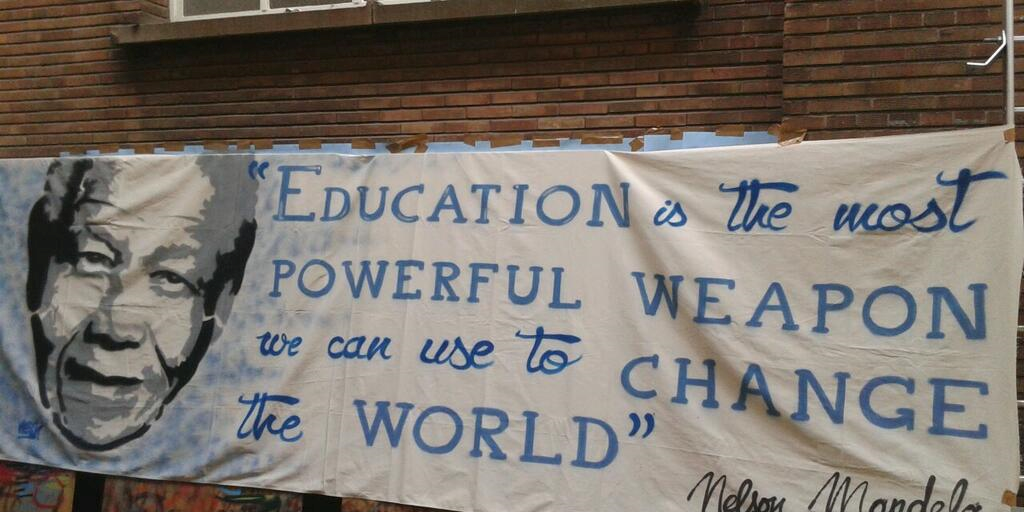 “EDUCATION is the most
POWERFUL WEAPON
we can use to CHANGE
the WORLD”
Nelson Mandela